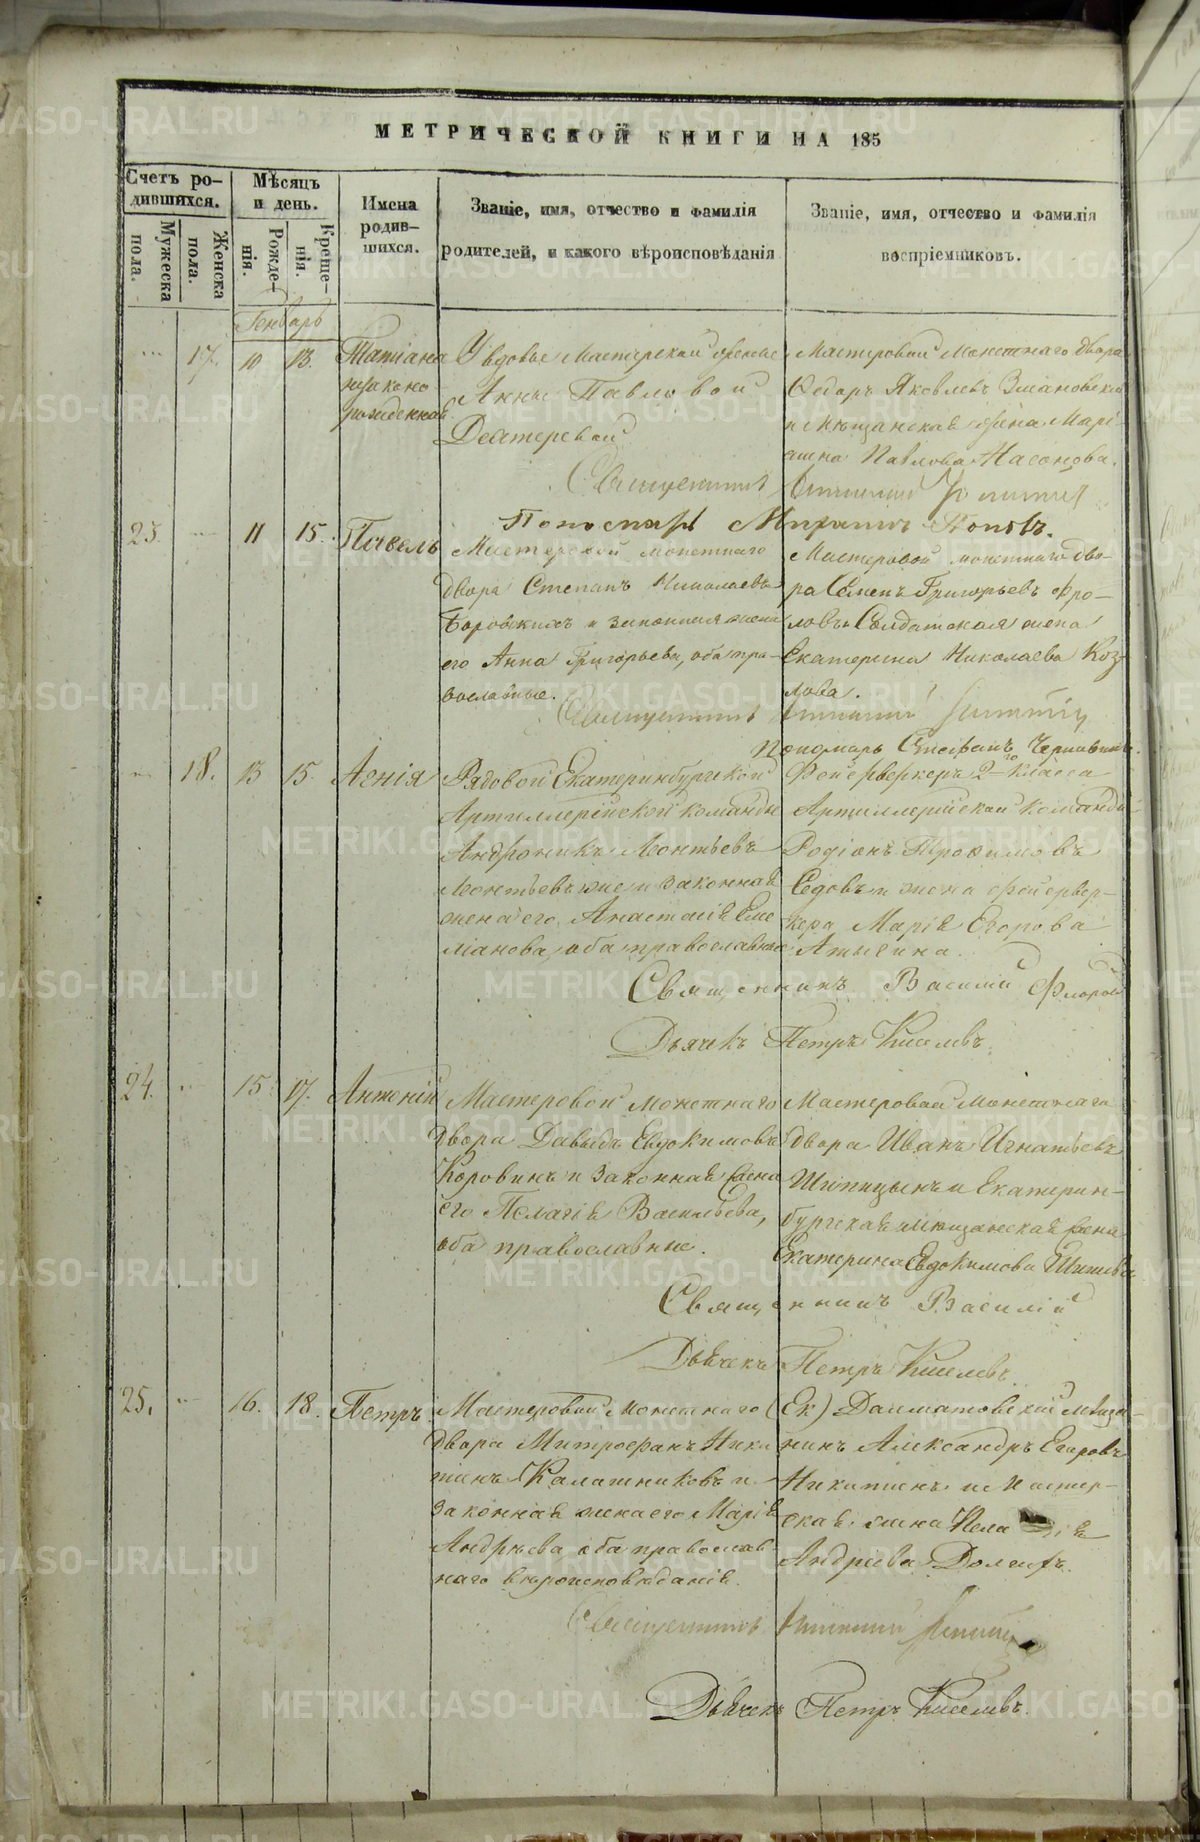 МЕТРИЧЕСКОЙ КНИГИ НА 185
Счетъ ро-
дившихся.
Мѣсяцъ
и день.
Имена
родив-
шихся.
Званіе, имя, отчество и фамилія
родителей, и какого вѣроисповѣданія
Званіе, имя, отчество и фамилія
воспріемниковъ.
Мужеска
пола.
Женска
пола.
Рожде-
нія.
Креще-
нія.
Генварь
17. 10 13.
Татіана
незаконо
рожденная
У вдовы Мастерской жены
Анны Павловой
Дехтеревой
Мастеровой Монетнаго двора
Федоръ Яковлевъ
и мѣщанская жена Марі-
анна Павлова Насонова.
Священникъ
Пономарь Поповъ.
23. 11 15. Павелъ
Мастеровой монетнаго
двора Степанъ Николаевъ
Боровскихъ и законная жена
его Анна Григорьева, оба пра-
вославные.
Мастеровой монетнаго дво-
ра Семенъ Григорьевъ Фро-
ловъ и Солдатская жена
Екатерина Николаева Коз-
лова.
Священникъ
Пономарь Стефанъ
18. 13 15. Агнія
Рядовой Екатеринбургской
Артиллерійской команды
Андроникъ Леонтьевъ
Леонтьевъ же и законная
жена его Анастасія Еме
льянова, оба православные
Фейерверкеръ 2го класса
Артиллерійской команды
Родіонъ Трофимовъ
Седовъ и жена фейервер-
кера Марія Егорова
Священникъ Василій Флоров
Дьячекъ Петръ Киселевъ.
24. 15 17. Антоній
Мастеровой Монетнаго
двора Давыдъ Евдокимовъ
Коровинъ и законная жена
его Пелагія Васильева,
оба православные.
Мастеровой Монетнаго
двора Иванъ Игнатьевъ
Шипицынъ и Екатерин-
бургская мѣщанская жена
Екатерина Евдокимова
Священникъ Василій
Дьячекъ Петръ Киселевъ.
25. 16. 18. Петръ
Мастеровой Монетнаго
двора Митрофанъ Ники
тинъ Калашниковъ и
законная жена его Марія
Андрѣева оба православ
наго вѣроисповѣданія.
(Ек) Далматовскій мѣща-
нинъ Александръ Егоровъ
Никитинъ и Мастер-
ская жена Пела гія
Андріева Долгихъ.
Священникъ
Дьячекъ Петръ Киселевъ.
METRIKI.GASO-URAL.RU